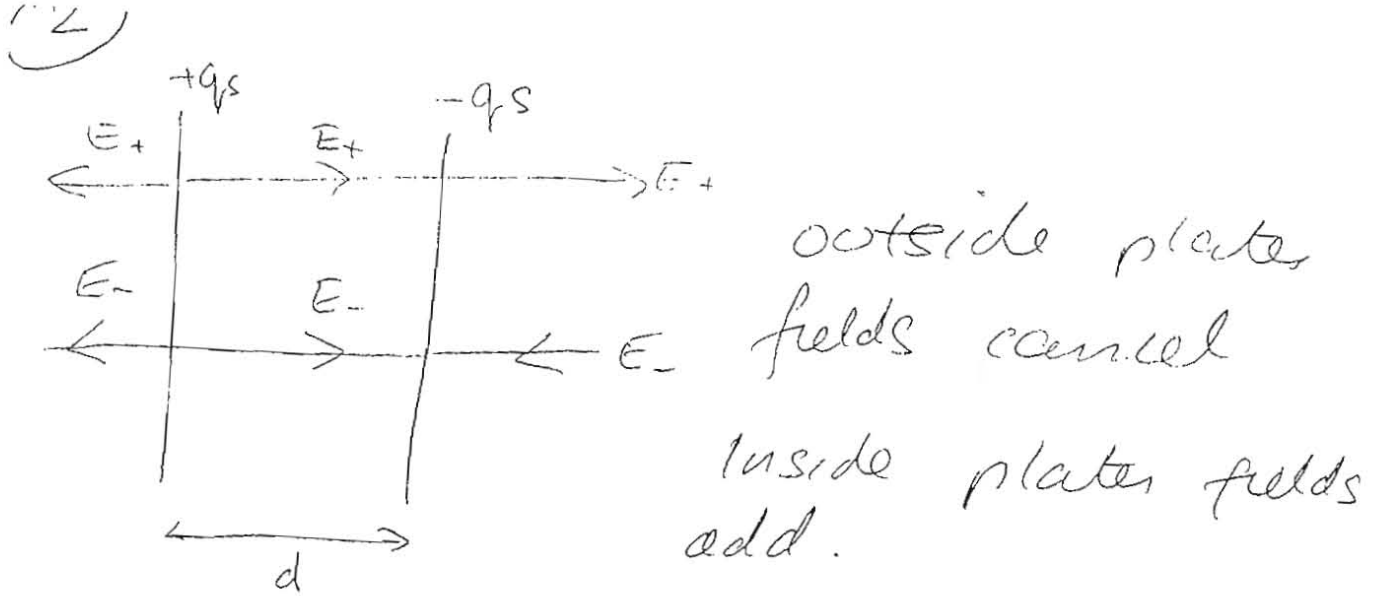 +qs
-qs
E+
E+
E+
E-
E-
E-
d
outside plates
fields cancel
Inside plates fields
add.